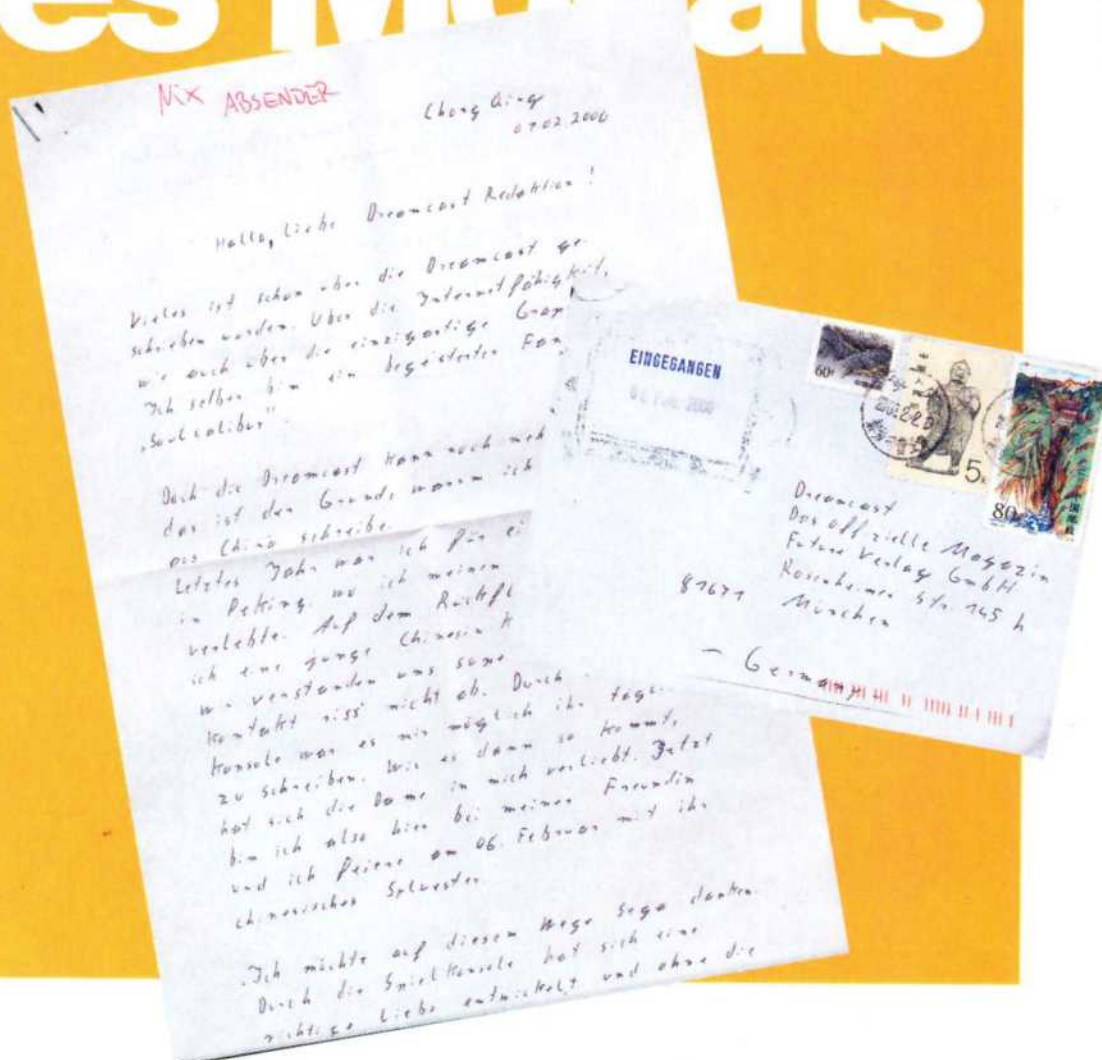 es Monats
NIX ABSENDER
Chong Qing
01.02.2000
Hallo, liebe Dreamcast Redaktion!
Vieles ist schon über die Dreamcast ge-
schrieben worden. Über die Internetfähigkeit,
wie auch über die einzigartige
Ich selber bin ein begeisterter Fan
„Soulcalibur“
Doch die Dreamcast kann noch
das ist der Grund, warum ich
aus China schreibe.
Letztes Jahr war ich für
in Peking, wo ich meinen
verlebte. Auf dem
ich eine junge Chinesin
wir verstanden uns
Kontakt riss nicht ab. Durch
Konsole war es mir möglich ihr
zu schreiben. Wie es dann so kommt,
hat sich die Dame in mich verliebt. Jetzt
bin ich also hier bei meiner Freundin
und ich feiere am 06. Februar mit ihr
chinesisches Sylvester.
Ich möchte auf diesem Wege Sega danken.
Durch die Spielkonsole hat sich eine
richtige Liebe entwickelt und ohne die
EINGEGANGEN
60
5
80
Dreamcast
Das offizielle Magazin
Future Verlag GmbH
Rosenheimer Str. 145 h
81671 München
- Germany -